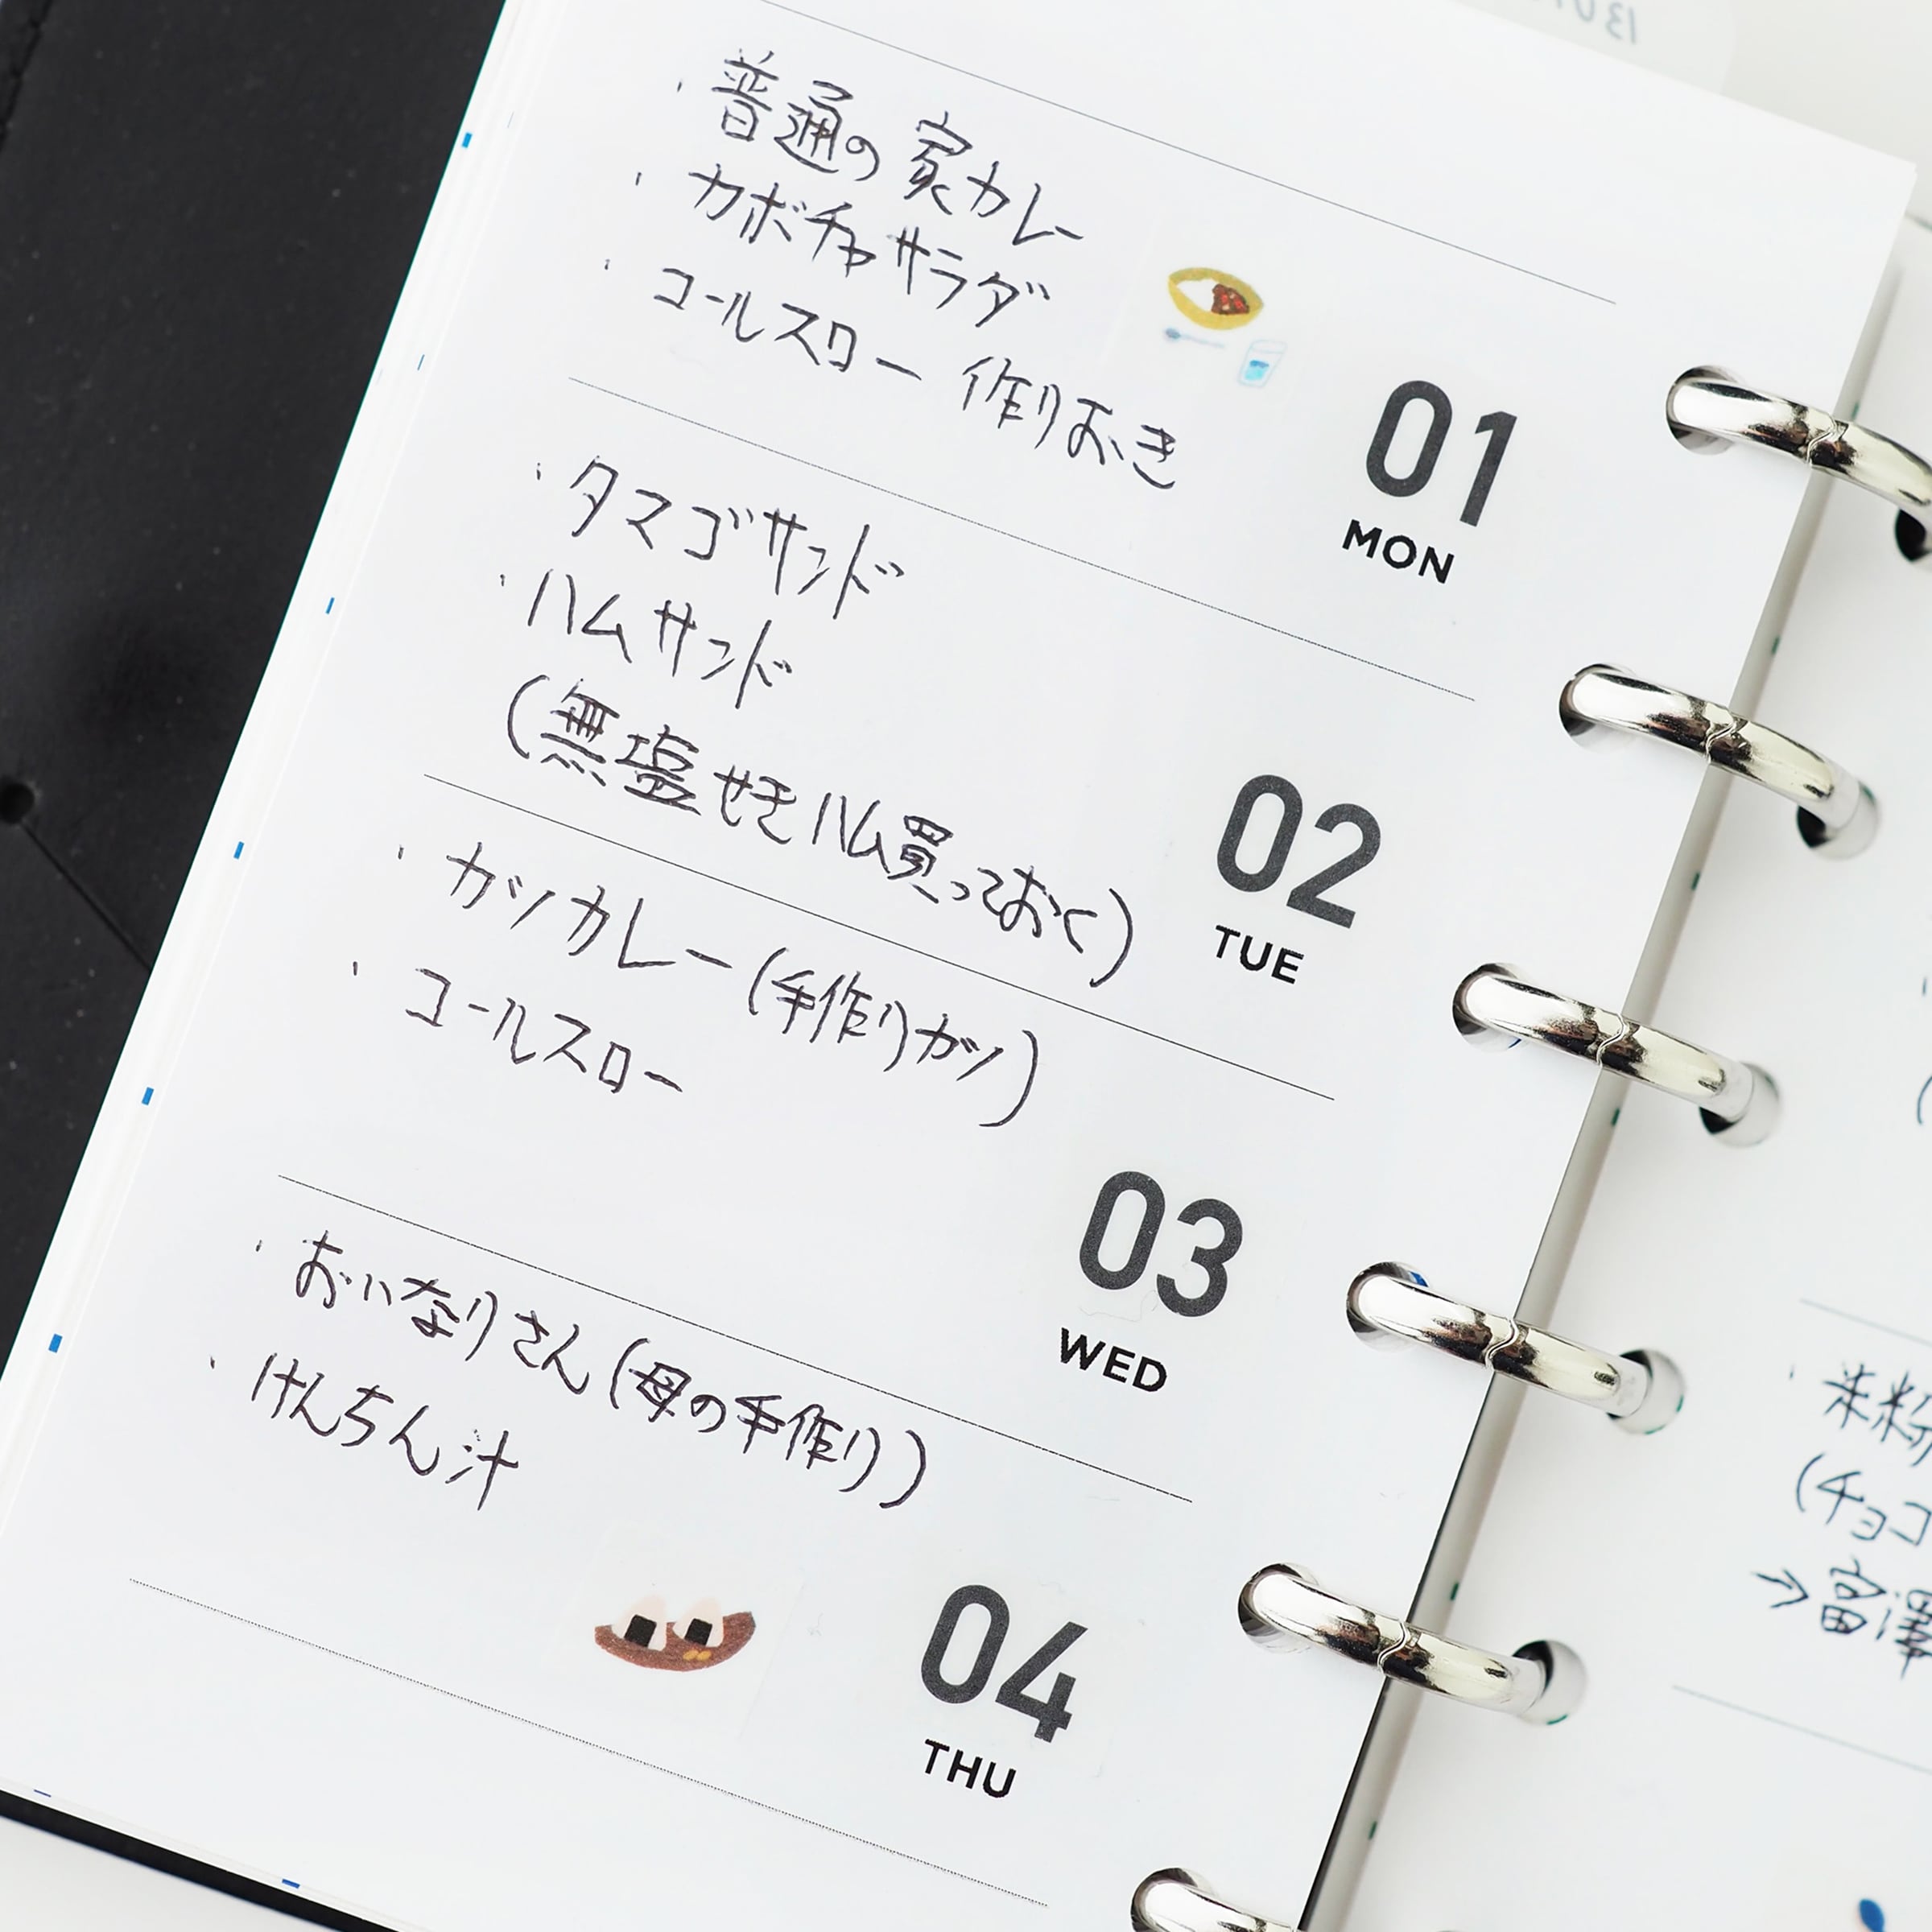 ・普通の家カレー
・カボチャサラダ
・コールスロー 作りおき
01
MON
・タマゴサンド
・ハムサンド
(無塩せきハム買っておく)
02
TUE
・カツカレー(手作りカツ)
・コールスロー
03
WED
・おいなりさん(母の手作り)
・けんちん汁
04
THU
・米粉
(チョコ
→富澤